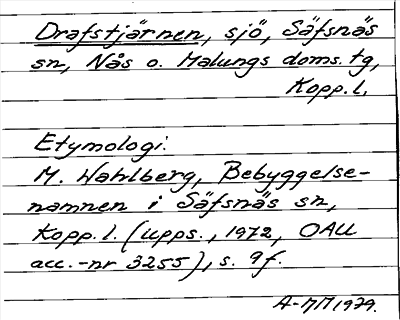 Drafstjärnen, sjö, Säfsnäs
sn, Nås o. Malungs doms. tg,
Kopp. l.
Etymologi:
M. Wahlberg, Bebyggelse-
namnen i Säfsnäs sn,
Kopp. l. (Upps., 1972, OAU
acc.-nr 3255), s. 9f.
1979.